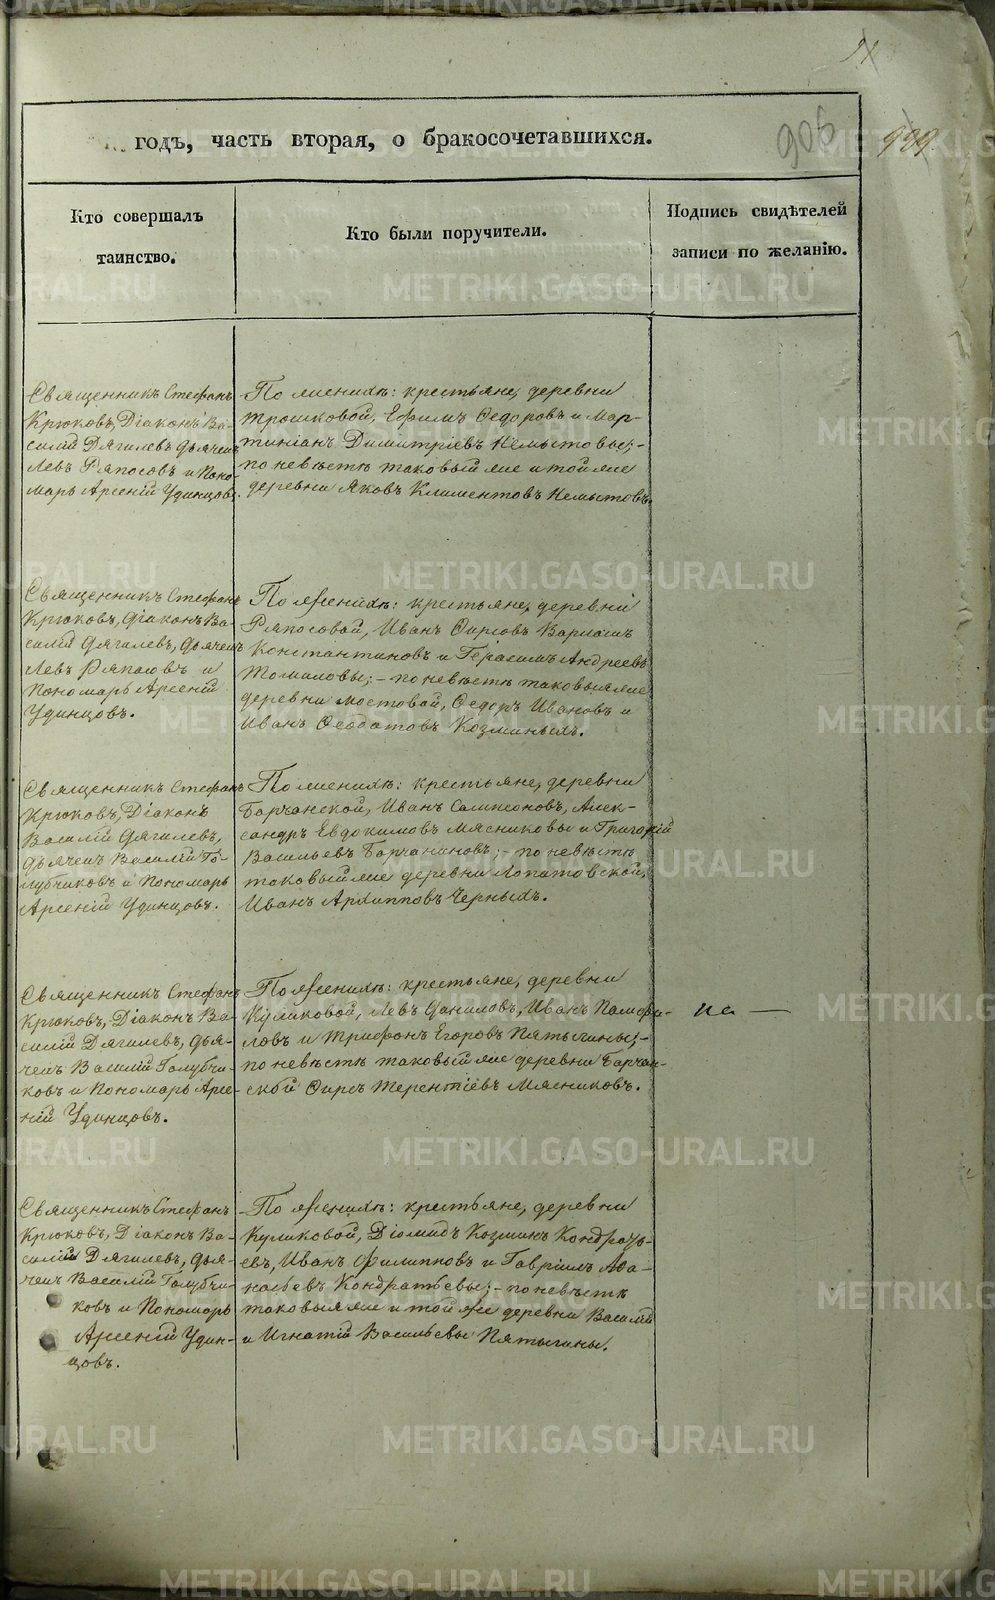 906
годъ, часть вторая, о бракосочетавшихся.
Кто совершалъ
таинство.
Кто были поручители.
Подпись свидѣтелей
записи по желанію.
Священникъ Стефанъ
Крюковъ, Діаконъ Ва-
силій Дягилевъ, дьячекъ
Левъ Ряпосовъ и Поно-
марь Арсеній Удинцовъ.
По женихѣ: крестьяне, деревни
Трошковой, Ефимъ Ѳедоровъ и Мар-
тиніанъ Димитріевъ Немытовы;-
по невѣстѣ таковый же и той же
деревни Яковъ Климентовъ Немытовъ.
Священникъ Стефанъ
Крюковъ, Діаконъ Ва-
силій Дягилевъ, дьячекъ
Левъ Ряпасовъ и
Пономарь Арсеній
Удинцовъ.
По женихѣ: крестьяне, деревни
Ряпосовой, Иванъ Варламъ
Константиновъ и Герасимъ Андреевъ
Томиловы;- по невѣстѣ таковыя же
деревни Мостовой, Ѳедоръ Ивановъ и
Иванъ Ѳеодотовъ Козминыхъ.
Священникъ Стефанъ
Крюковъ, Діаконъ
Василій Дягилевъ,
дьячекъ Василій Го-
лубчиковъ и Пономарь
Арсеній Удинцовъ.
По женихѣ: крестьяне, деревни
Барчанской, Иванъ Сампсоновъ, Алек-
сандръ Евдокимовъ Мясниковы и Григорій
Васильевъ Барчаниновъ;- по невѣстѣ
таковый же деревни Лопатовской,
Иванъ Архипповъ Черныхъ.
Священникъ Стефанъ
Крюковъ, Діаконъ Ва-
силій Дягилевъ, дья-
чекъ Василій Голубчи-
ковъ и Пономарь Арсе-
ній Удинцовъ.
По женихѣ: крестьяне, деревни
Куликовой, Левъ Даниловъ, Иванъ Памфи-
ловъ и Трифонъ Егоровъ Пятыгины;-
по невѣстѣ таковый же деревни Барчан-
ской Терентіевъ Мясниковъ.
Священникъ Стефанъ
Крюковъ, Діаконъ Ва-
силій Дягилевъ, дья-
чекъ Василій Голубчи-
ковъ и Пономарь
Арсеній Удин-
цовъ.
По женихѣ: крестьяне, деревни
Куликовой, Діомидъ Козминъ Кондрать-
евъ, Иванъ Филипповъ и Гавріилъ Аѳа-
насьевъ Кондратьевы;- по невѣстѣ
таковыя же и той же деревни Василій
и Игнатій Васильевы Пятыгины.
METRIKI.GASO-URAL.RU